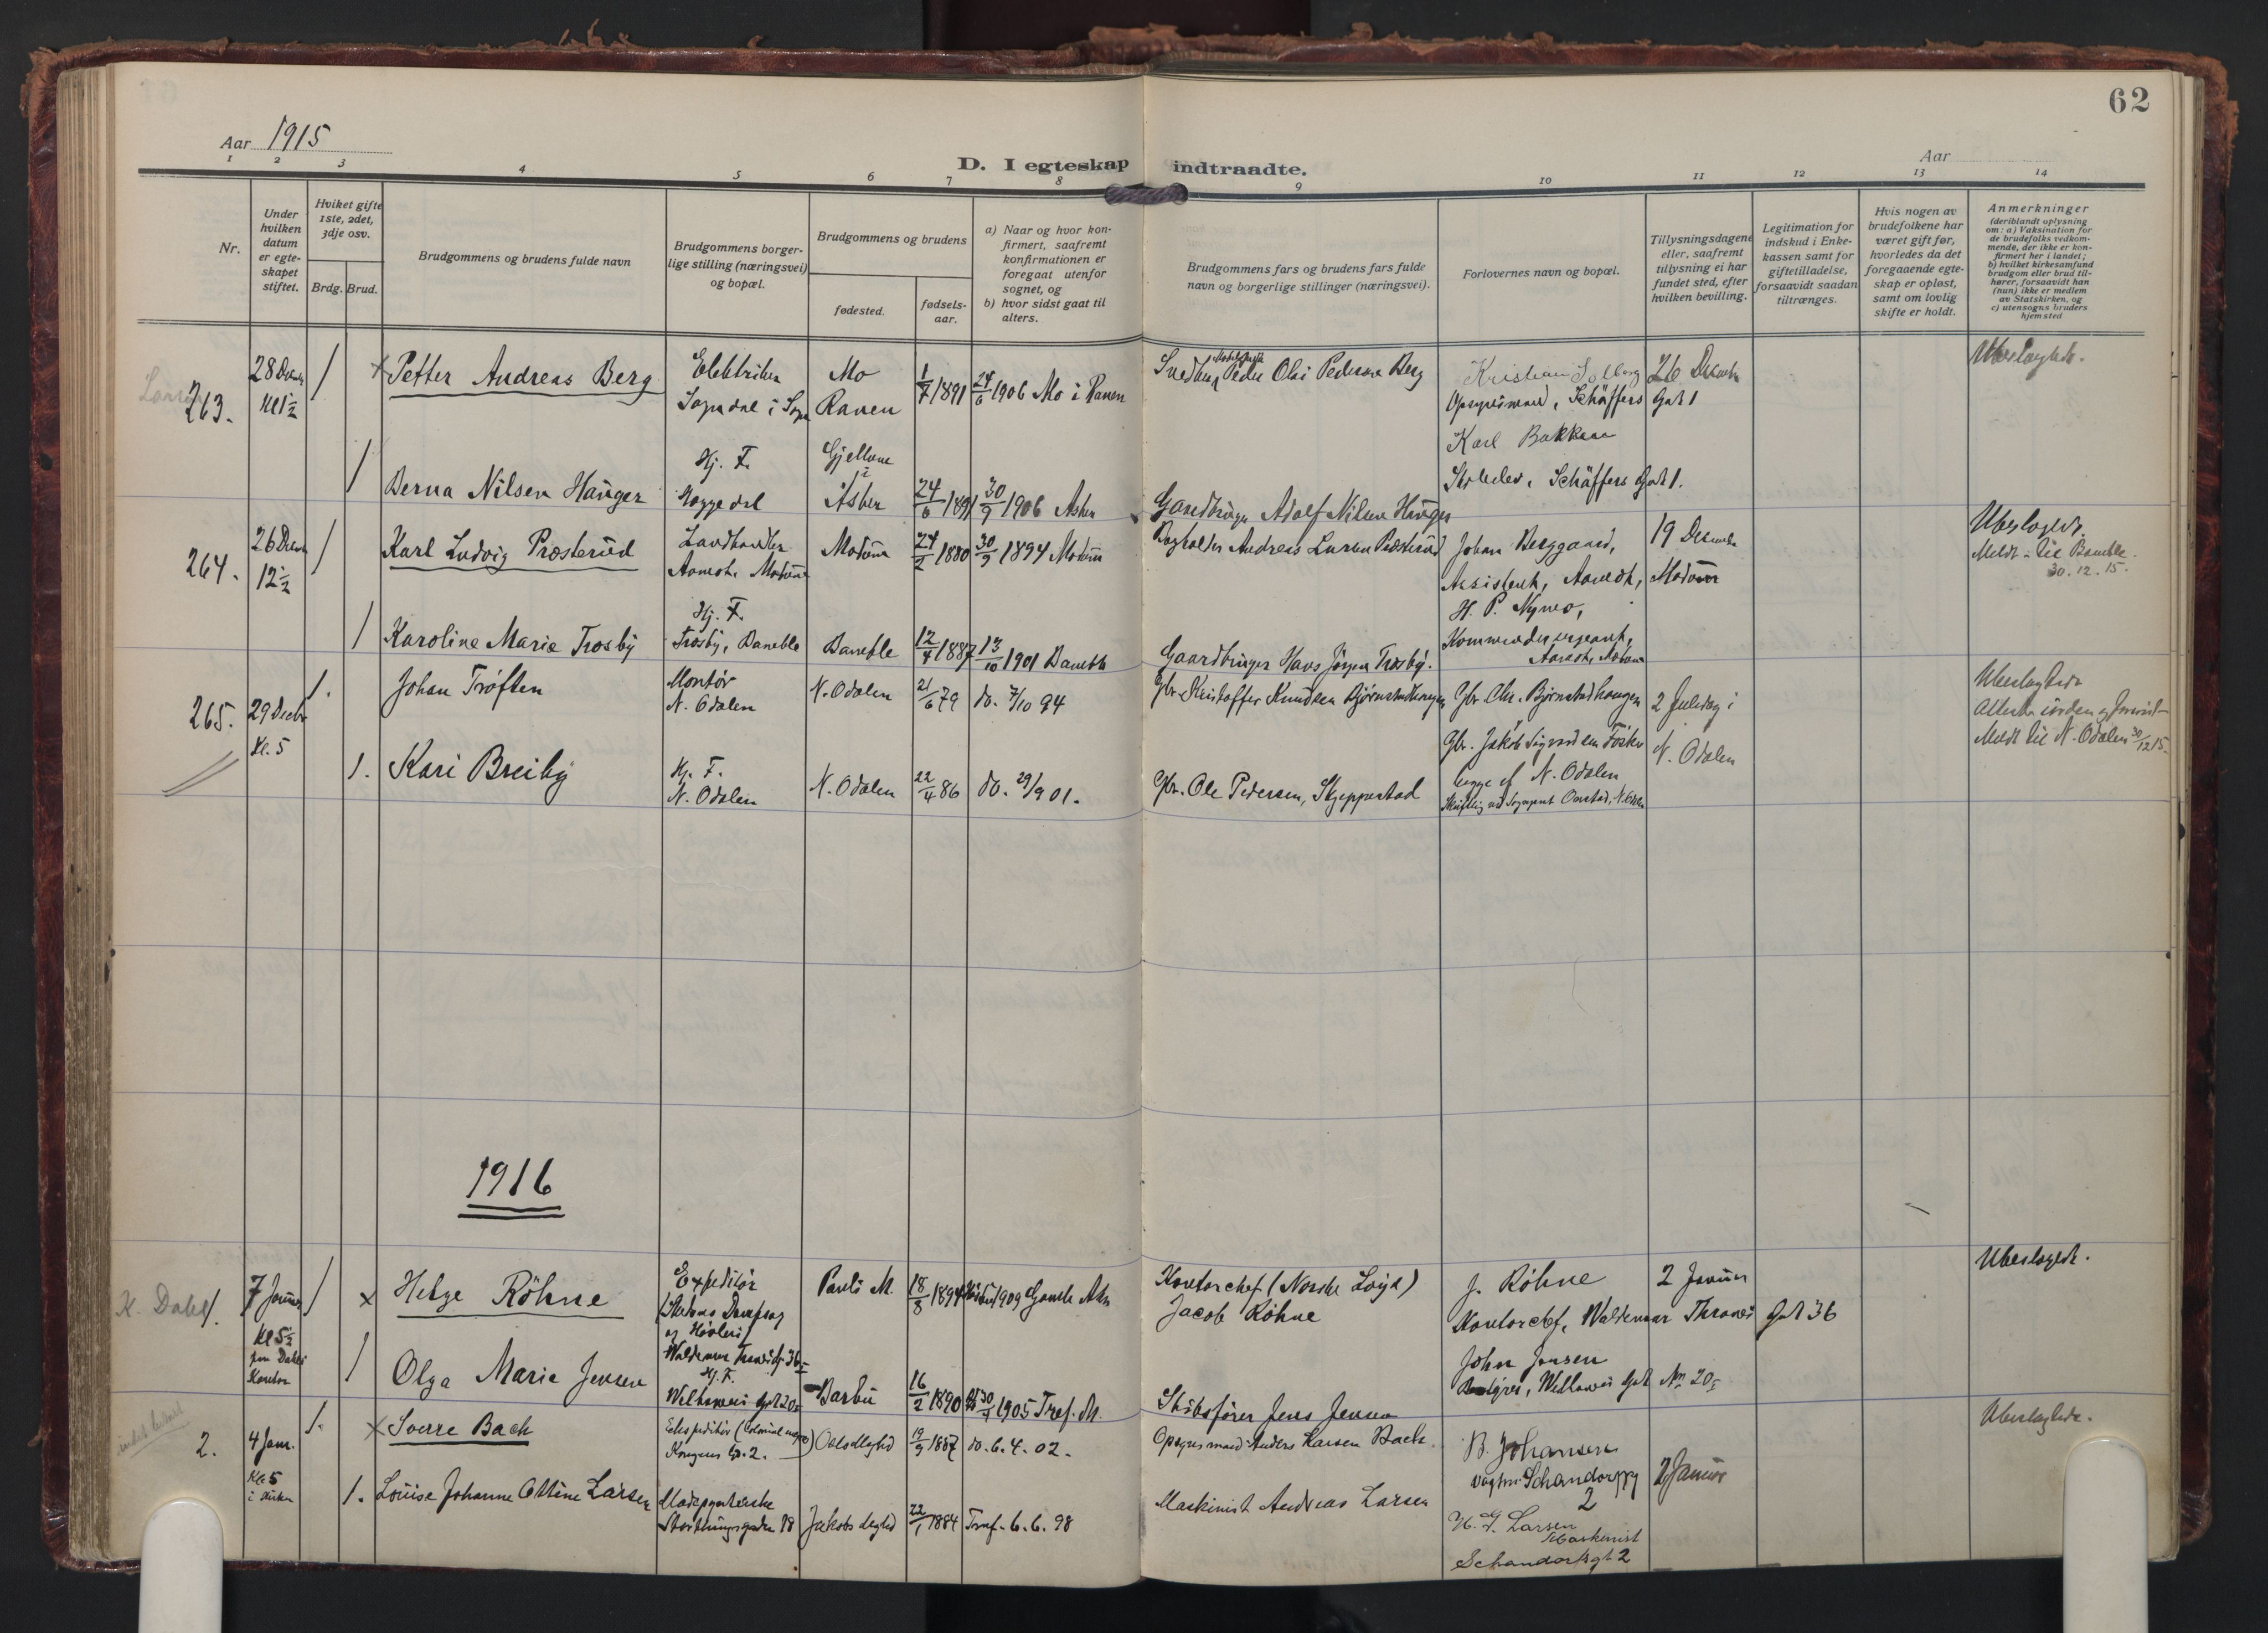 62
Aar 1915
D. I egteskap indtraadte.
Aar
1 2 3 4 5 6 7 8 9 10 11 12 13 14
Nr.
Under hvilken datum er egte-skapet stiftet.
Hviket gifte 1ste, 2det, 3dje osv.
Brdg. Brud.
Brudgommens og brudens fulde navn
Brudgommens borger-
lige stilling (næringsvei)
og bopæl.
Brudgommens og brudens
fødested.
fødsels-
aar.
a) Naar og hvor kon-
firmert, saafremt
konfirmationen er
foregaat utenfor
sognet, og
b) hvor sidst gaat til
alters.
Brudgommens fars og brudens fars fulde
navn og borgerlige stillinger (næringsvei).
Forlovernes navn og bopæl.
Tillysningsdagene
eller, saafremt
tillysning ei har
fundet sted, efter
hvilken bevilling.
Legitimation for
indskud i Enke-
kassen samt for
giftetilladelse,
forsaavidt saadan
tiltrænges.
Hvis nogen av
brudefolkene har
været gift før,
hvorledes da det
foregaaende egte-
skap er opløst,
samt om lovlig
skifte er holdt.
Anmerkninger
(deriblandt oplysning
om: a) Vaksination for
de brudefolks vedkom-
mende, der ikke er kon-
firmert her i landet;
b) hvilket kirkesamfund
brudgom eller brud til-
hører, forsaavidt han
(hun) ikke er medlem
av Statskirken, og
c) utensogns bruders
hjemsted
263.
28 Decemb
Kl 1½
/
x Petter Andreas Berg
Elektriker
Sogndal i Sogn
Mo
Ranen
1/7 1891
1906 Mo i Ranen
Peder Olai Pedersen Berg
Kristian Solberg
Opsynsmand, Schäffers Gat 1
Karl Bakken
Schäffers Gat 1.
26 Decemb
Ubeslegtede.
/
Berna Nilsen Hauger
Hj. F.
Gjellum
i
Asker
24/6 1891
30/9 1906 Asker
Gaardbruger Adolf Nilsen Hauger
264.
26 Decemb
12½
/
Karl Ludvig Præsterud
Landhandler
Aamodt Modum
Modum
24/2 1880
30/9 1894 Modum
Andreas Larsen Præsterud
Johan Berggaard,
Assistent, Aamodt,
H. P. Nymo,
Kommandersergeant,
Aamodt, Modum
19 Decemb
Modum
Ubeslegtede.
Meldt til Bamble.
30.12.15.
/
Karoline Marie Trosby
Hj. F.
Trosby, Bamble
Bamble
12/4 1887
13/10 1901 Bamble
Gaardbruger Hans Jörgen Trosby.
265.
29 Decbr
Kl. 5
1.
Johan Trøften
Montör
N. Odalen
N. Odalen
21/6 79
do. 7/10 94
Gbr. Kristoffer Knudsen Bjørnstadhaugen
Gbr. Chr. Bjørnstadhaugen
Gbr. Jakob Sigvardsen
begge af N. Odalen
2 Juledag i
N. Odalen
Ubeslegtede
Meldt til N. Odalen 30/12 15.
1.
Kari Breiby
Hj. F.
N. Odalen
N. Odalen
22/4 86
do. 29/9 01.
Gbr. Ole Pedersen, Skjeppestad
1916
K. Dahl
1.
7 Januar
Kl 5½
paa Dahls
Kontor
/
x Helge Röhne
Expeditör
og Høvleri
Pauls M.
18/8 1894
1909 Gamle Aker
Kontorchef (Norske Loyd)
Jacob Röhne
J. Röhne
Kontorchef, Waldemar Thranes Gat 36
John Jensen
2 Januar
Ubeslegtede.
/
Olga Marie Jensen
Hj. F.
Barbu
16/2 1890
1905 Tref. M.
Skibsfører Jens Jensen
2.
4 Jan.
Kl. 5
i kirken
1.
x Sverre Bach
Ekspeditör
Kongens Gt. 2.
19/9 1887
do. 6. 4. 02.
Opsynsmand Anders Larsen Bach
B. Johansen
Schandorffg
2
H. G. Larsen
Maskinist
Schandorffsgt 2
2 Januar
Ubeslegtede.
1.
Louise Johanne Ottine Larsen
Stortingsgaden 18
22/1 1884
Tref. 6. 6. 98
Maskinist Andreas Larsen